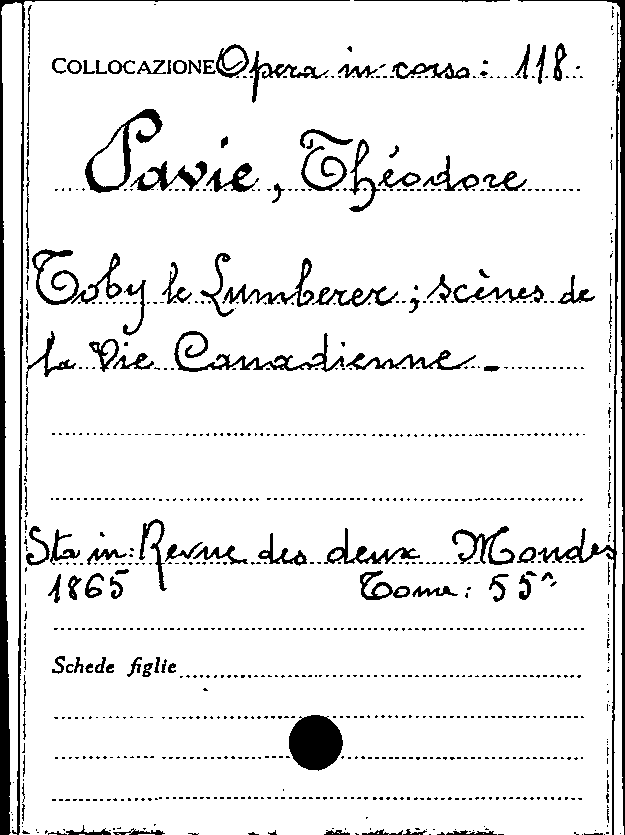 COLLOCAZIONE Opera in corso: 118.
Pavie, Théodore
Toby le Lumberer; scènes de
la Vie Canadienne -
Sta in: Revue des deux Mondes
1865 Tome: 55^
Schede figlie